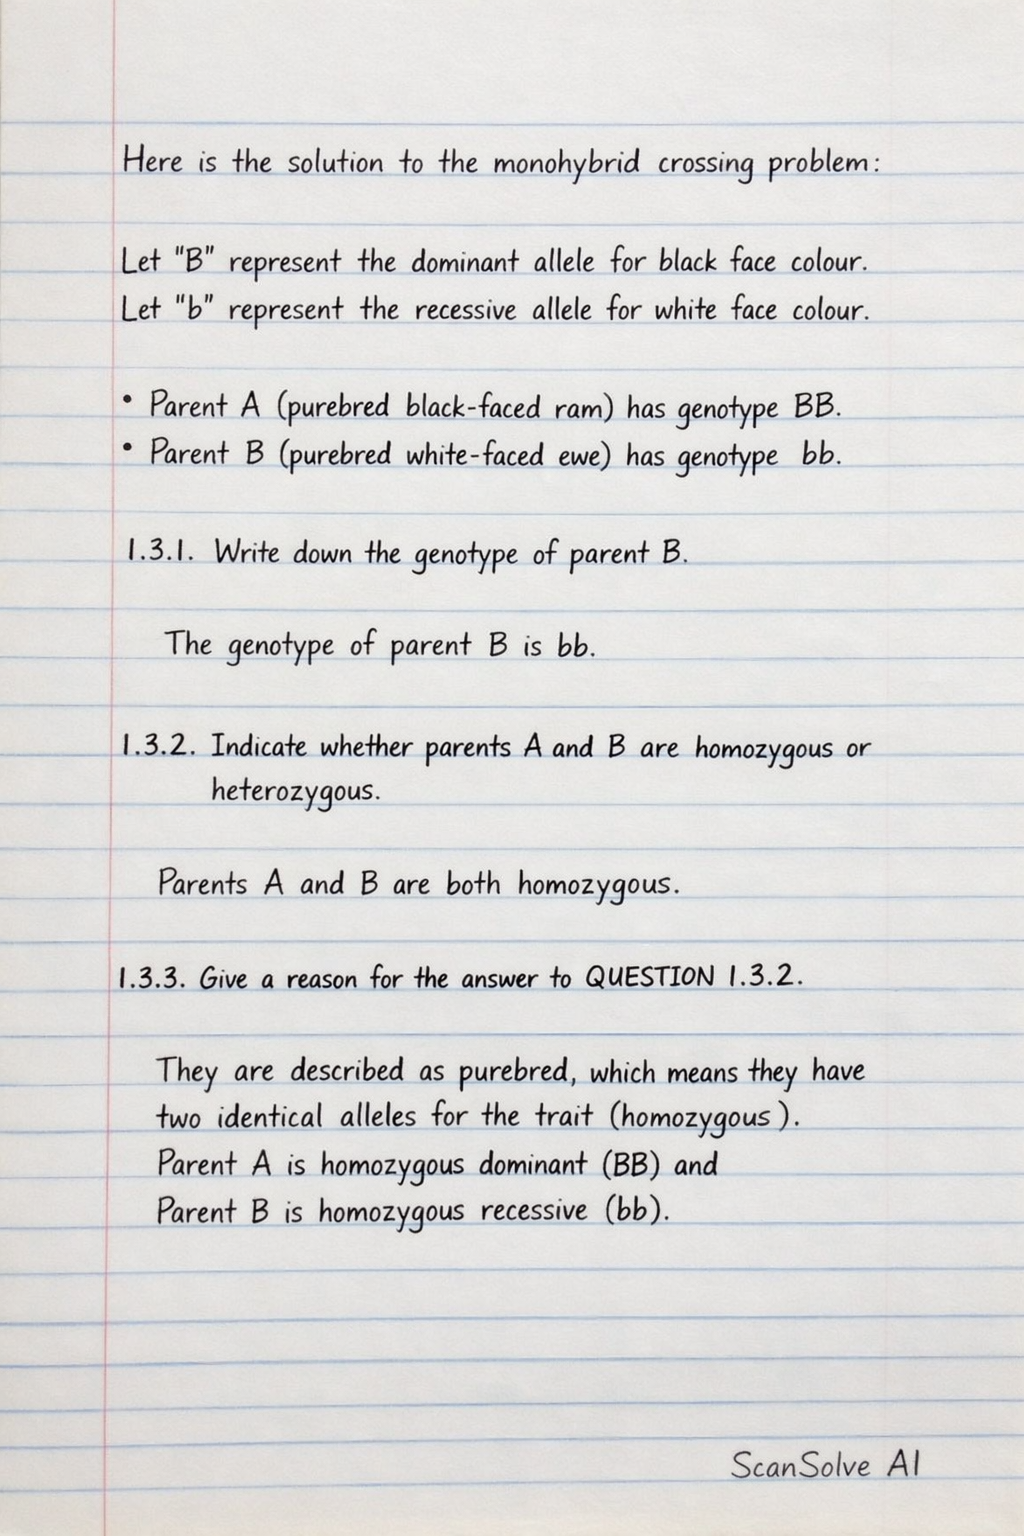 Here is the solution to the monohybrid crossing problem:
Let "B" represent the dominant allele for black face colour.
Let "b" represent the recessive allele for white face colour.
• Parent A (purebred black-faced ram) has genotype BB.
• Parent B (purebred white-faced ewe) has genotype bb.
1.3.1. Write down the genotype of parent B.
The genotype of parent B is bb.
1.3.2. Indicate whether parents A and B are homozygous or
heterozygous.
Parents A and B are both homozygous.
1.3.3. Give a reason for the answer to QUESTION 1.3.2.
They are described as purebred, which means they have
two identical alleles for the trait (homozygous).
Parent A is homozygous dominant (BB) and
Parent B is homozygous recessive (bb).
ScanSolve AI